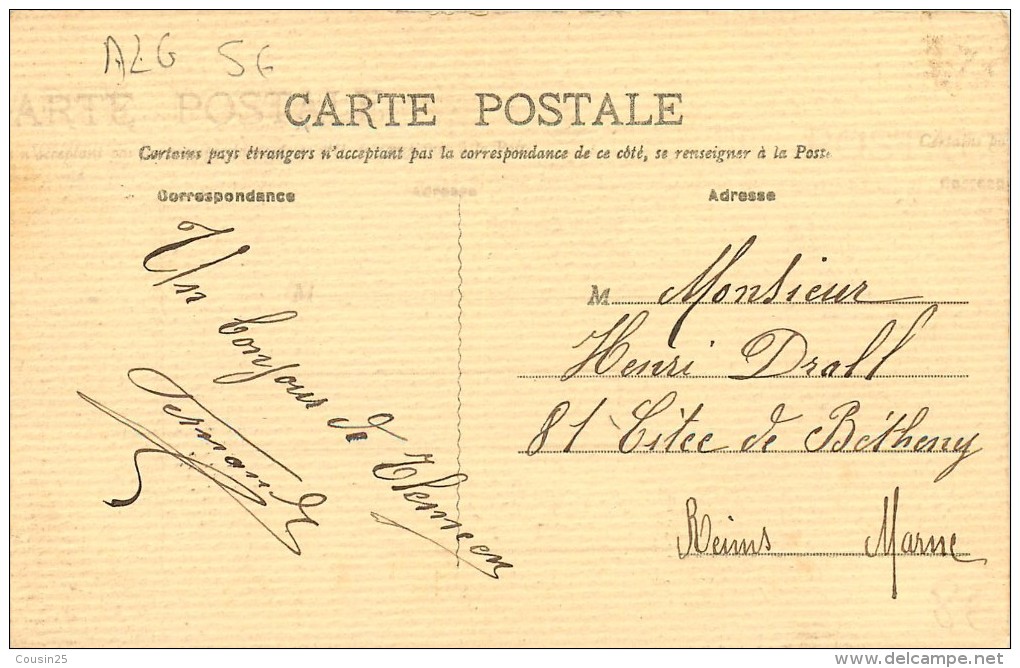 ALG 56
CARTE POSTALE
Certains pays étrangers n'acceptant pas la correspondance de ce côté, se renseigner à la Poste
Correspondance
Un bonjour de Tlemcen
Fernand
Adresse
M Monsieur
Henri Drall
81 Citée de Bétheny
Reims Marne
Cousin25
www.delcampe.net